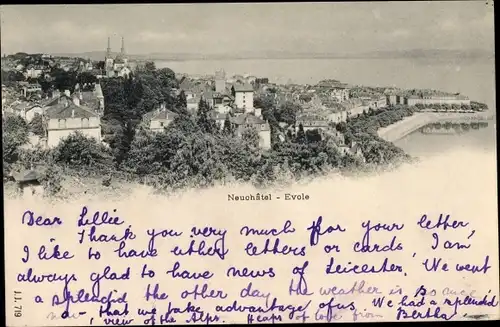 Neuchâtel - Evole
Dear Lillie
Thank you very much for your letter,
I like to have either letters or cards, I am
always glad to have news of Leicester. We went
a splendid the other day the weather is
that we take advantage of us. We had a splendid
view of the Alps. Heaps of love from Bertha
11.719